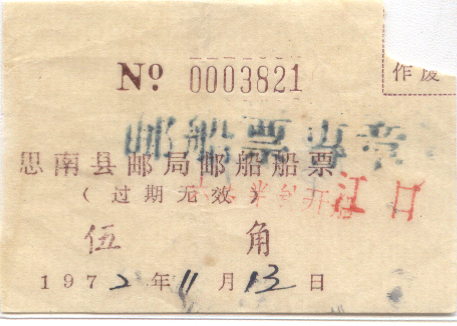 作废
№ 0003821
邮船票专章
思南县邮局邮船船票
（过期无效）
江口
伍 角
1972年11月13日